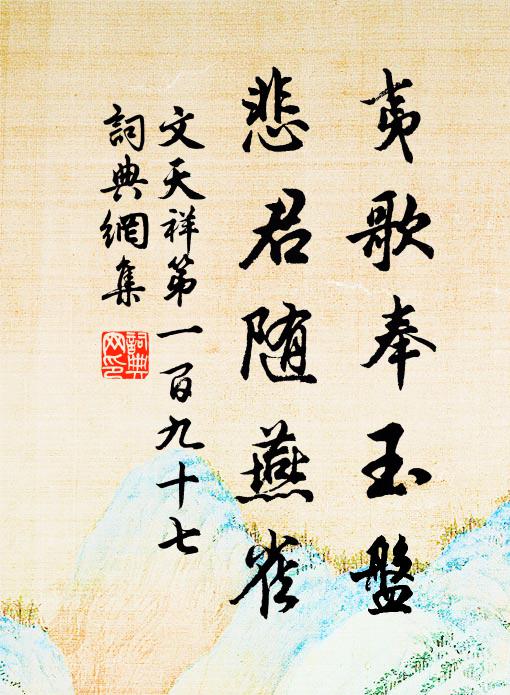 夷歌奉玉盤
悲君随燕雀
文天祥第一百九十七
詞典網集
詞典网印